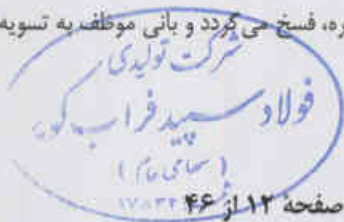 ره، فسخ می گردد و بانی موظف به تسویه
شرکت تولیدی
فولاد سپید فراب کویر
(سهامی عام)
صفحه ۱۲ از ۴۶